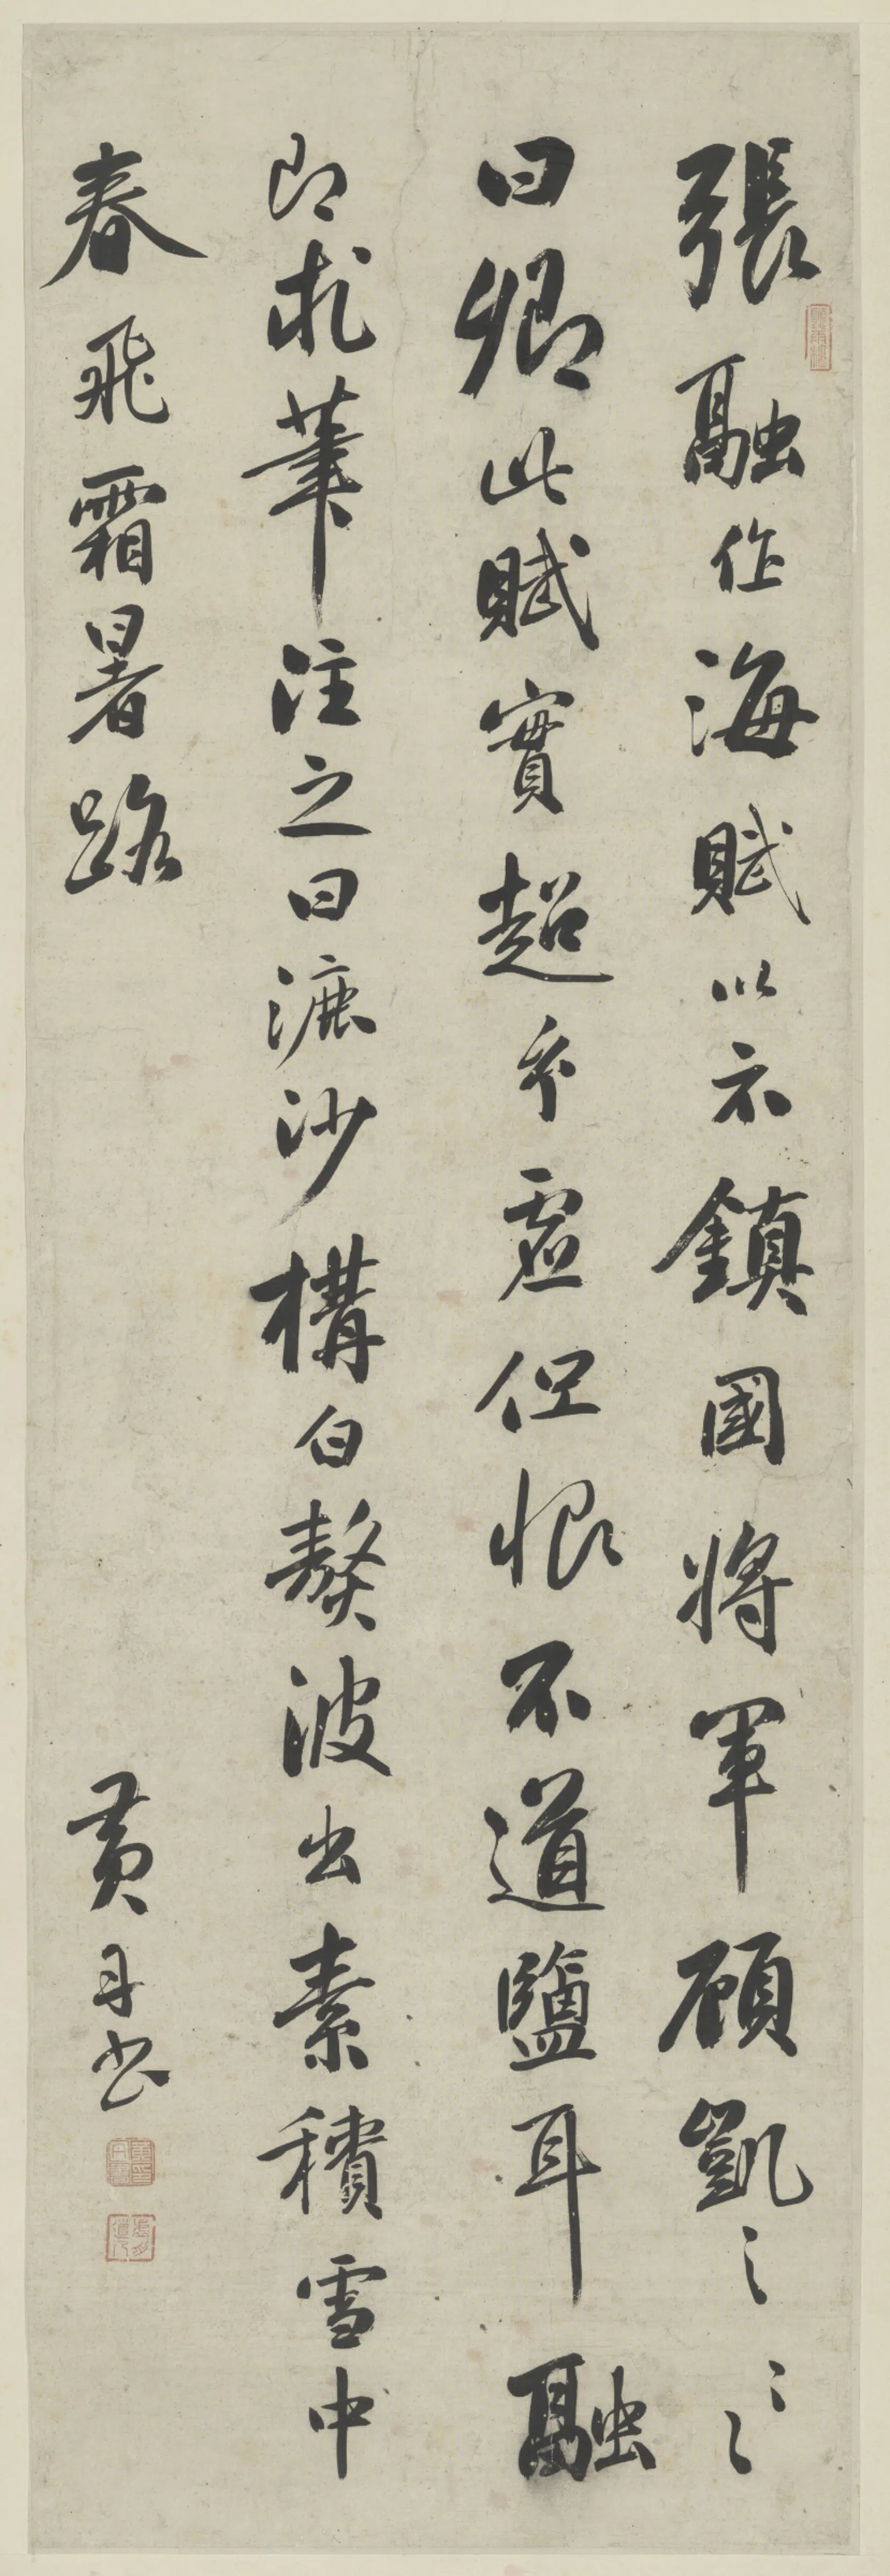 張融作海賦以示鎮國將軍顧凱之之
曰卿此賦實超玄虛但恨不道鹽耳融
即求筆注之曰漉沙構白熬波出素積雪中
春飛霜暑路
黃丹書